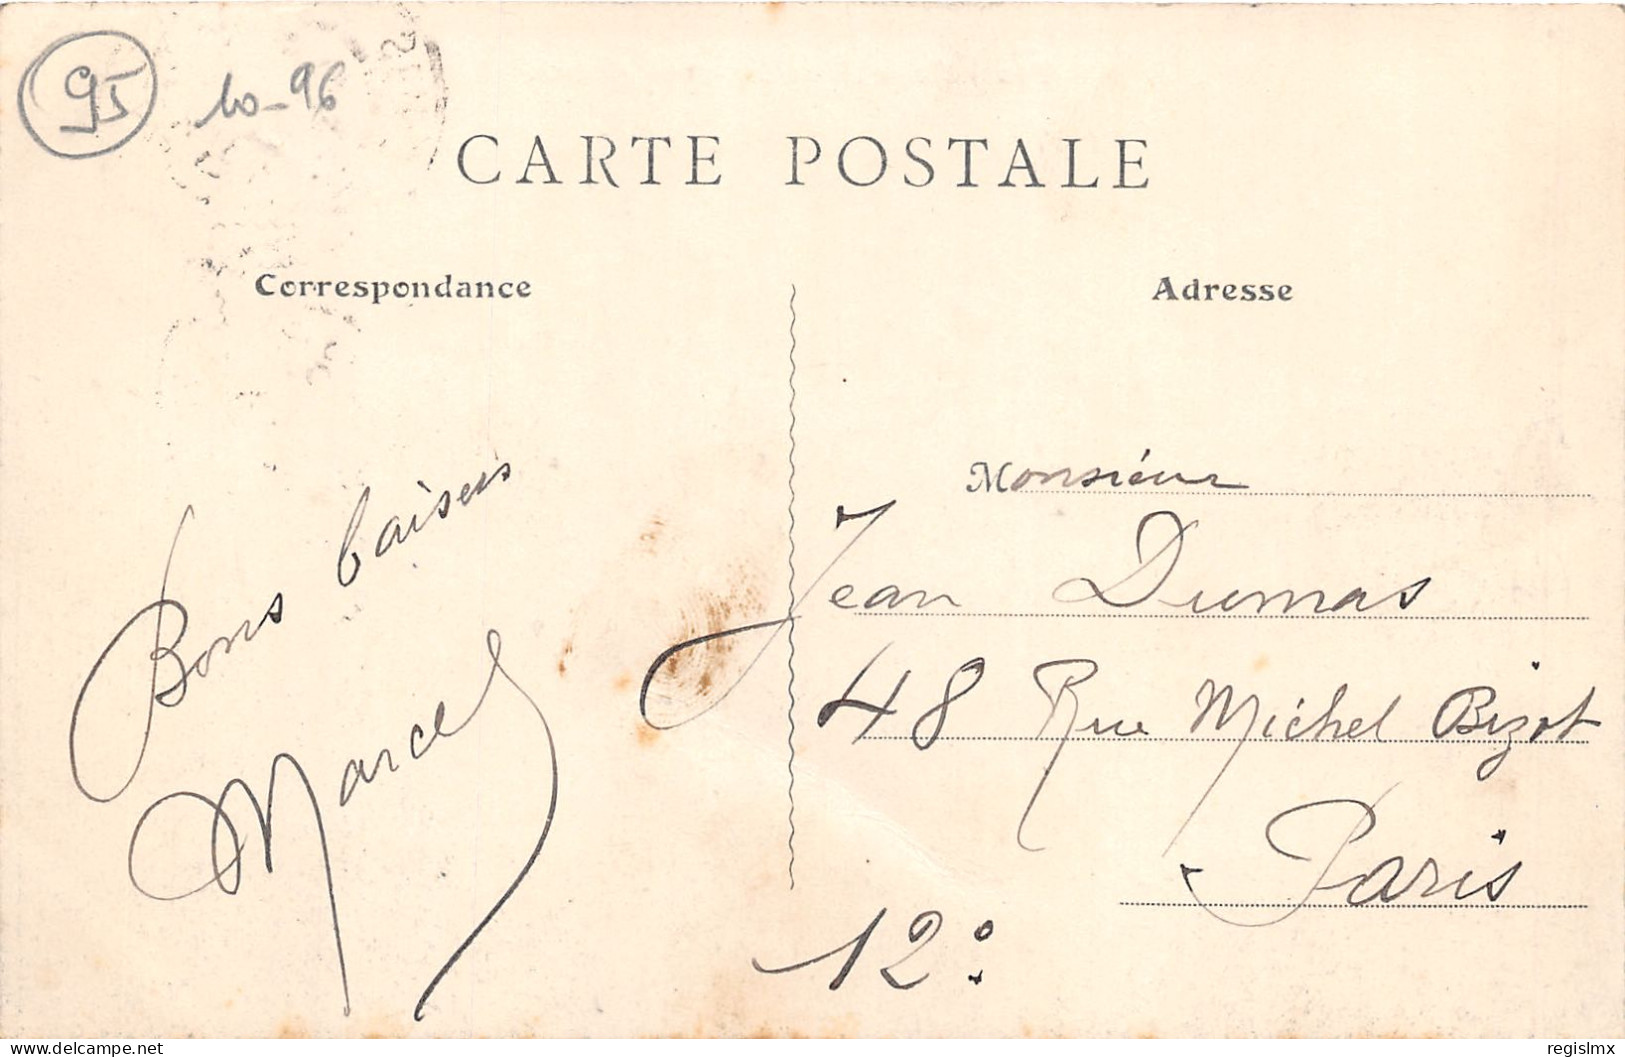 95
10-96
CARTE POSTALE
Correspondance
Adresse
Bons baisers
Marcel
Monsieur
Jean Dumas
48 Rue Michel Bizot
Paris
12e
www.delcampe.net
regislmx